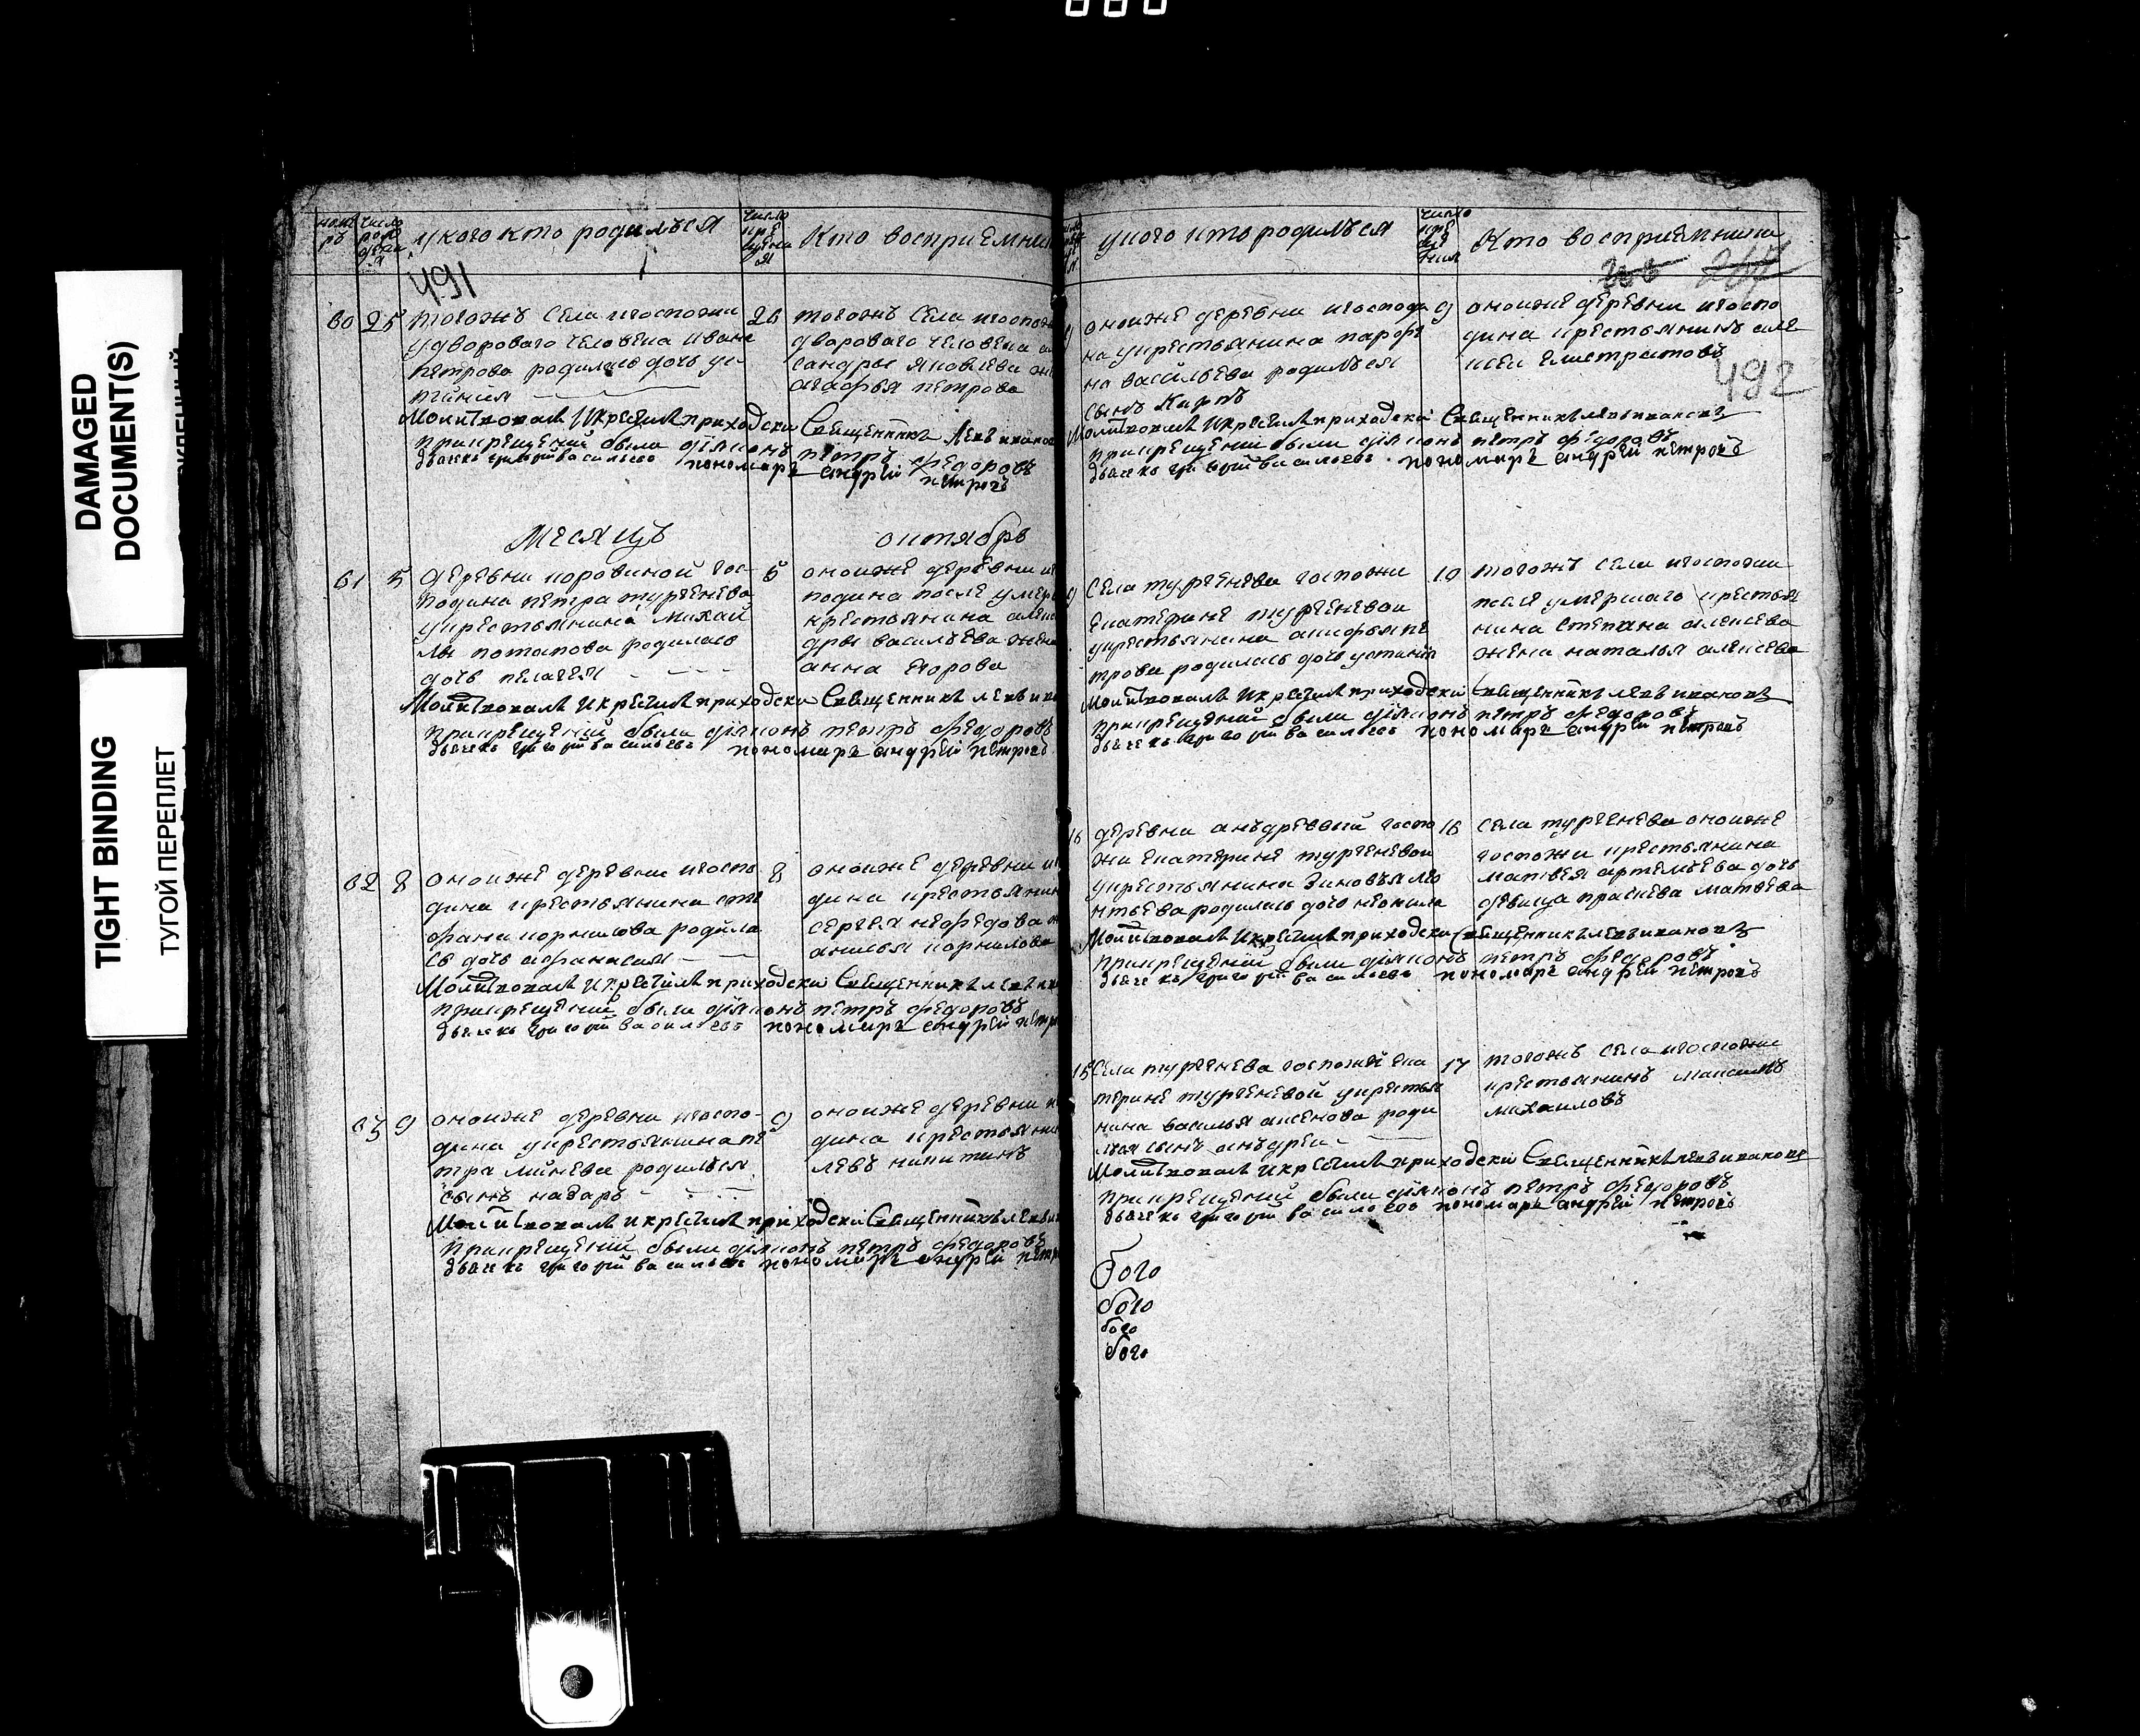 DAMAGED
DOCUMENT(S)
TIGHT BINDING
ТУГОЙ ПЕРЕПЛЕТ
номѣ
ръ
число
рож
дени
я
у кого кто родился
число
кре
щени
я
Кто восприемники
491
60 25 тогожъ села и госпожи
у двороваго человека ивана
петрова родилась дочь
26 тогожъ села и госпожи
двороваго человека
сандры яковлева
агафья петрова
Молитвовалъ и крестилъ приходски Священникъ Левъ иванов
при крещении были діяконъ петръ федоровъ
дьячекъ григорій васильевъ пономарь андрей петровъ
Месяцъ октябрь
61 5 деревни коровиной гос-
подина петра тургенева
у крестьянина михай
лы потапова родилась
дочь пелагея
6 оноиже деревни
подина после умер
крестьянина
дры васильева жена
анна егорова
Молитвовалъ и крестилъ приходски Священникъ левъ
при крещении были діяконъ петръ федоровъ
дьячекъ григорій васильевъ пономарь андрей петровъ
62 8 оноиже деревни и госпо
дина крестьянина сте
фана корнилова родила
сь дочь афанасия
8 оноиже деревни и
дина крестьянин
сергея нефедова
анисья корнилова
Молитвовалъ и крестилъ приходски Священникъ левъ
при крещении были діяконъ петръ федоровъ
дьячекъ григорій васильевъ пономарь андрей петр
63 9 оноиже деревни и госпо-
дина у крестьянина пе
тра родился
сынъ назаръ
9 оноиже деревни и
дина крестьяни
левъ никитинъ
Молитвовалъ и крестилъ приходски Священникъ лев
при крещении были діяконъ петръ федоровъ
дьячекъ григорій васильевъ пономарь андрей петр
у кого кто родился
число
кре
ще
ния
Кто восприемники
267
492
оноиже деревни и господи
на у крестьянина парфе
на васильева родился
сынъ Карпъ
9 оноиже деревни и госпо
дина крестьянинъ але
ксей елистратовъ
Молитвовалъ и крестилъ приходски Священникъ левъ ивановъ
при крещении были діяконъ петръ федоровъ
дьячекъ григорій васильевъ пономарь андрей петровъ
9 Села тургенева госпожи
екатерине тургеневой
у крестьянина никифора пе
трова родилась дочь устинья
10 тогожъ села и госпожи
после умершаго крестья
нина степана алексева
жена наталья алексева
Молитвовалъ и крестилъ приходски Священникъ левъ ивановъ
при крещении были діяконъ петръ федоровъ
дьячекъ григорій васильевъ пономарь андрей петровъ
16 деревни анъдревьвай госпо
жи екатерине тургеневой
у крестьянина зиновья ле
нтьева родилась дочь неонила
16 села тургенева оноиже
госпожи крестьянина
матвея артемьева дочь
девица матвева
Молитвовалъ и крестилъ приходски Священникъ левъ ивановъ
при крещении были діяконъ петръ федоровъ
дьячекъ григорій васильевъ пономарь андрей петровъ
15 Села тургенева госпожей ека
терине тургеневой у крестья
нина василья аксенова роди
лся сынъ анъдреи
17 тогожъ села и госпожи
крестьянинъ максимъ
михаиловъ
Молитвовалъ и крестилъ приходски Священникъ левъ ивановъ
при крещении были діяконъ петръ федоровъ
дьячекъ григорій васильевъ пономарь андрей петровъ
бого
бого
бого
бого